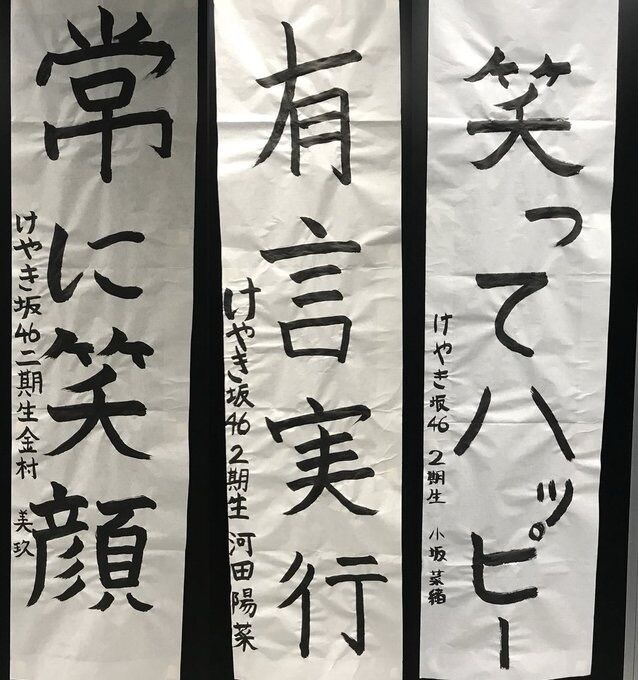 笑ってハッピー
けやき坂46 2期生 小坂菜緒
有言実行
けやき坂46 2期生 河田陽菜
常に笑顔
けやき坂46二期生金村 美玖